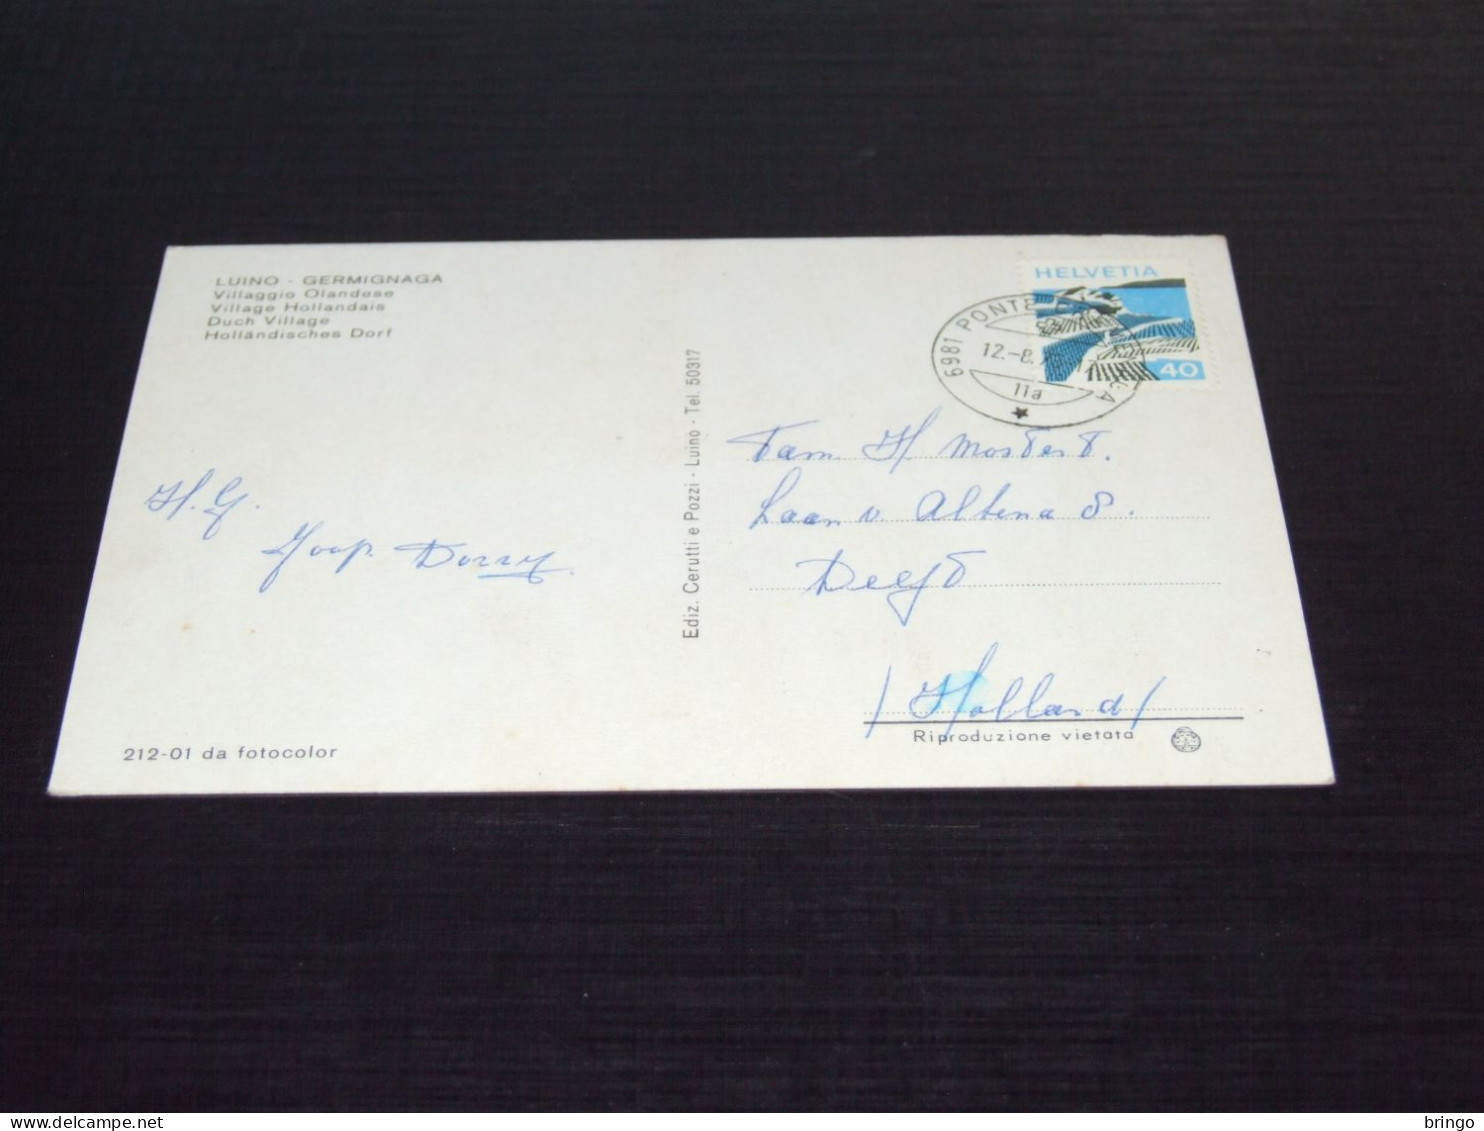 LUINO - GERMIGNAGA
Villaggio Olandese
Village Hollandais
Duch Village
Holländisches Dorf
HELVETIA
40
6981 PONTE
12.-8.
11a
Fam H Mostert.
Laan v. Altena 8.
Delft
/Holland/
H.G.
Joop. Dorry.
Ediz. Cerutti e Pozzi - Luino - Tel. 50317
212-01 da fotocolor
Riproduzione vietata
bringo